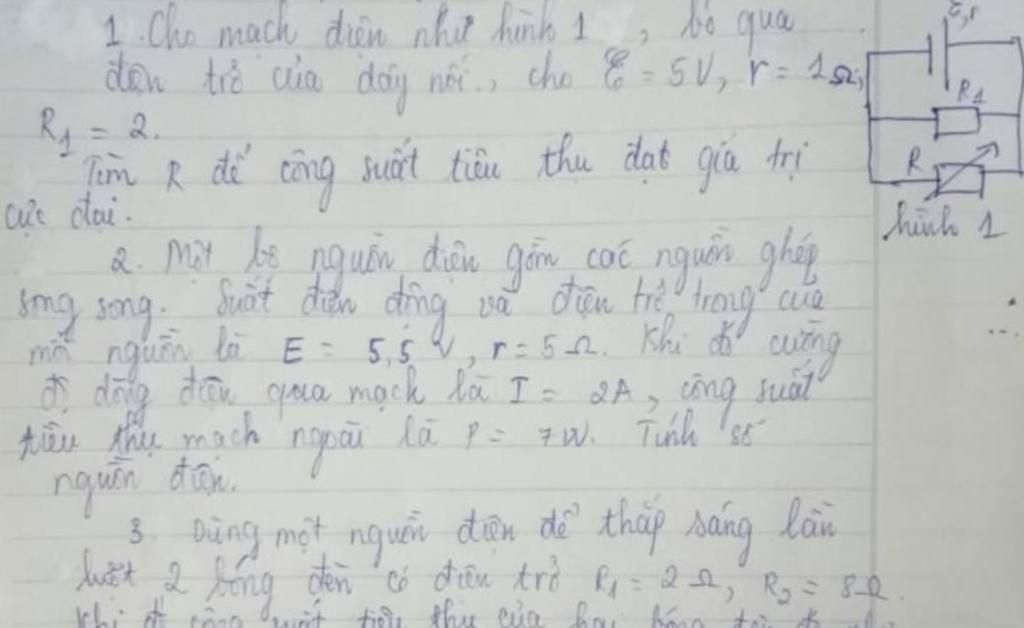 1. Cho mạch điện như hình 1, bỏ qua
điện trở của dây nối., cho ℰ = 5V, r = 1Ω,
R1 = 2.
Tìm R để công suất tiêu thụ đạt giá trị
cực đại.
ℰ,r
R1
R
hình 1
2. Một bộ nguồn điện gồm các nguồn ghép
song song. Suất điện động và điện trở trong của
mỗi nguồn là E = 5,5 V, r = 5 Ω. Khi đó cường
độ dòng điện qua mạch là I = 2A, công suất
tiêu thụ mạch ngoài là P = 7W. Tính số
nguồn điện.
3. Dùng một nguồn điện để thắp sáng lần
lượt 2 bóng đèn có điện trở R1 = 2 Ω, R2 = 8Ω.
Khi đó công suất tiêu thụ của hai bóng